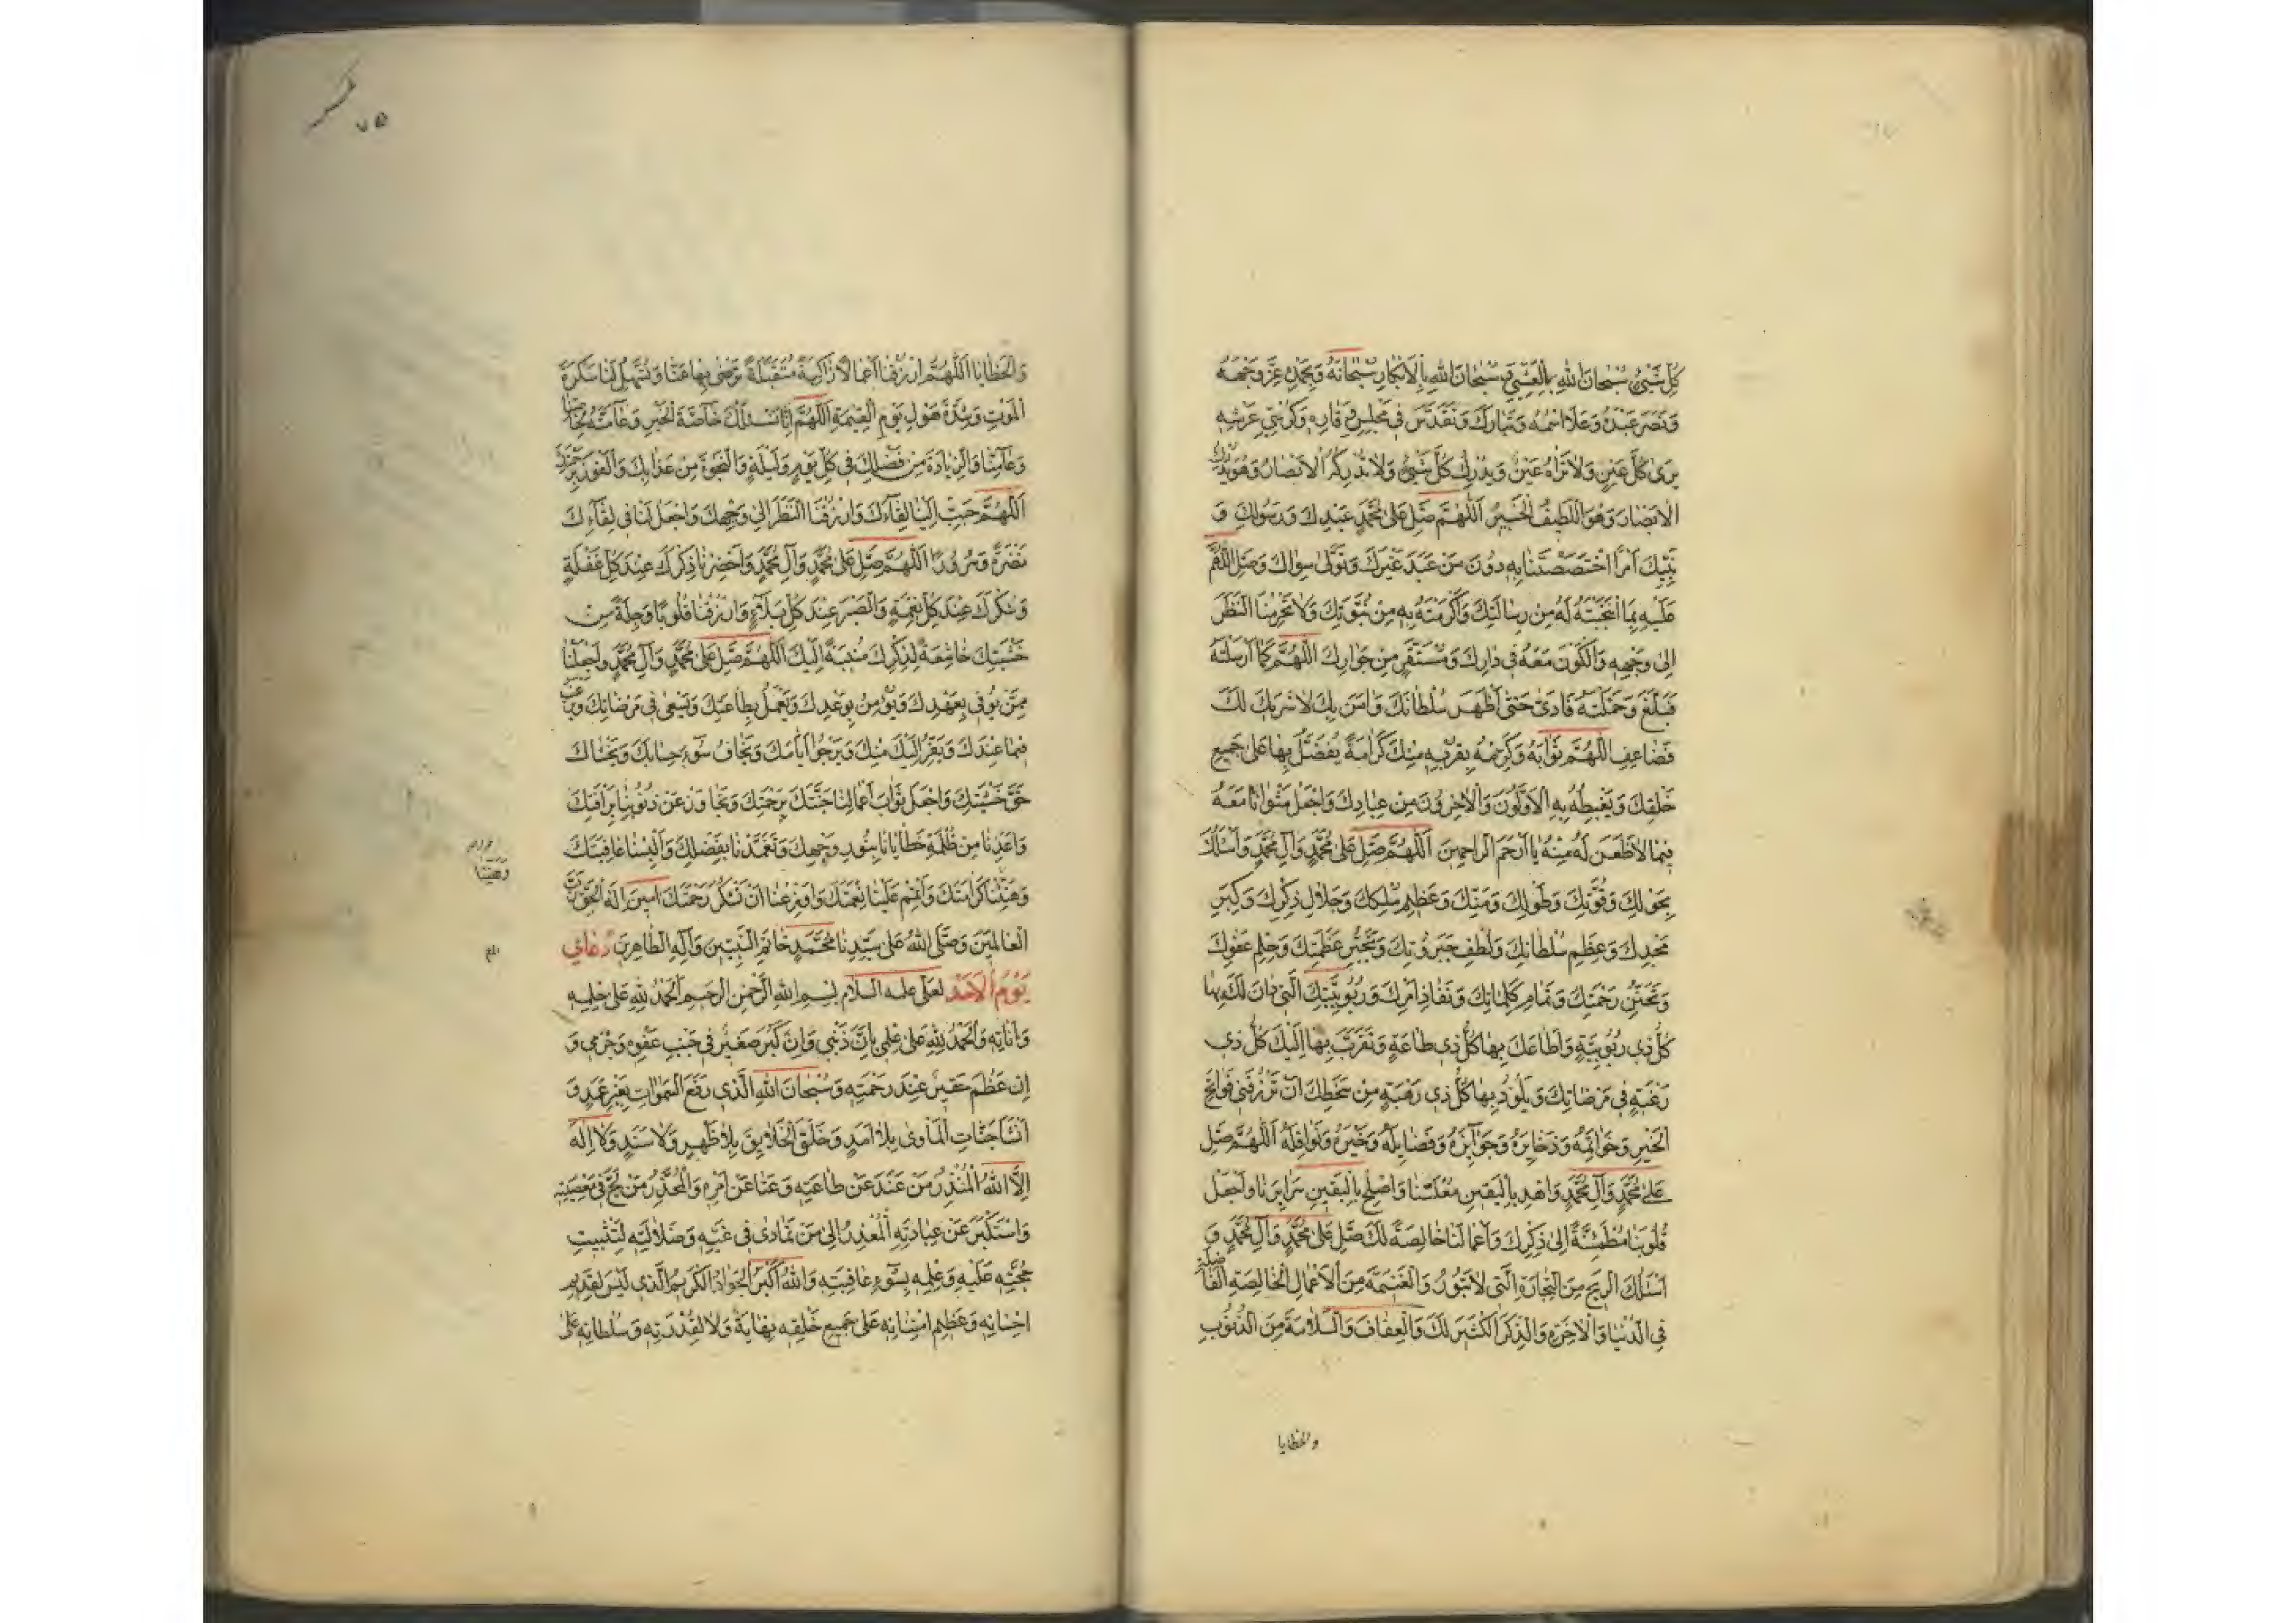 كُلِّ شَيْءٍ سُبْحَانَ اللهِ بِالْعَشِيِّ سُبْحَانَ اللهِ بِالْاِبْكَارِ سُبْحَانَهُ وَبِحَمْدِهِ عَزَّ وَجْهُهُ
وَنَصَرَ عَبْدَهُ وَعَلَا اسْمُهُ وَتَبَارَكَ وَتَقَدَّسَ فِي مَجْلِسِ وَقَارِهِ وَكُرْسِيِّ عَرْشِهِ
يَرَى كُلَّ عَيْنٍ وَلَا تَرَاهُ عَيْنٌ وَيُدْرِكُ كُلَّ شَيْءٍ وَلَا تُدْرِكُهُ الْاَبْصَارُ وَهُوَ يُدْرِكُ
الْاَبْصَارَ وَهُوَ اللَّطِيفُ الْخَبِيرُ اَللّهُمَّ صَلِّ عَلَى مُحَمَّدٍ عَبْدِكَ وَرَسُولِكَ وَ
نَبِيِّكَ اَمْرًا اخْتَصَصْتَنَا بِهِ دُونَ مَنْ عَبَدَ غَيْرَكَ وَتَوَلَّى سِوَاكَ وَصَلِّ اللّهُمَّ
عَلَيْهِ بِمَا انْتَجَبْتَهُ لَهُ مِنْ رِسَالَتِكَ وَاَكْرَمْتَهُ بِهِ مِنْ نُبُوَّتِكَ وَلَا تَحْرِمْنَا النَّظَرَ
اِلَى وَجْهِهِ وَالْكَوْنَ مَعَهُ فِي دَارِكَ وَمُسْتَقَرٍّ مِنْ جِوَارِكَ اللّهُمَّ كَمَا اَرْسَلْتَهُ
فَبَلَّغَ وَحَمَّلْتَهُ فَاَدَّى حَتَّى اَظْهَرَ سُلْطَانَكَ وَآمَنَ بِكَ لَا شَرِيكَ لَكَ
فَضَاعِفِ اللّهُمَّ ثَوَابَهُ وَكَرِّمْهُ بِقُرْبِهِ مِنْكَ كَرَامَةً يُفَضَّلُ بِهَا عَلَى جَمِيعِ
خَلْقِكَ وَيَغْبِطُهُ بِهِ الْاَوَّلُونَ وَالْآخِرُونَ مِنْ عِبَادِكَ وَاجْعَلْ مَثْوَانَا مَعَهُ
فِيمَا لَا ظَعْنَ لَهُ مِنْهُ يَا اَرْحَمَ الرَّاحِمِينَ اَللّهُمَّ صَلِّ عَلَى مُحَمَّدٍ وَآلِ مُحَمَّدٍ وَاَسْئَلُكَ
بِحَوْلِكَ وَقُوَّتِكَ وَطَوْلِكَ وَمَنِّكَ وَعَظِيمِ مُلْكِكَ وَجَلَالِ ذِكْرِكَ وَكِبَرِ
مَجْدِكَ وَعِظَمِ سُلْطَانِكَ وَلُطْفِ جَبَرُوتِكَ وَتَجَبُّرِ عَظَمَتِكَ وَحِلْمِ عَفْوِكَ
وَتَحَنُّنِ رَحْمَتِكَ وَتَمَامِ كَلِمَاتِكَ وَنَفَاذِ اَمْرِكَ وَرُبُوبِيَّتِكَ الَّتِي دَانَ لَكَ بِهَا
كُلُّ ذِي رُبُوبِيَّةٍ وَاَطَاعَكَ بِهَا كُلُّ ذِي طَاعَةٍ وَتَقَرَّبَ بِهَا اِلَيْكَ كُلُّ ذِي
رَغْبَةٍ فِي مَرْضَاتِكَ وَيَلُوذُ بِهَا كُلُّ ذِي رَهْبَةٍ مِنْ سَخَطِكَ اَنْ تَرْزُقَنِي فَوَاتِحَ
الْخَيْرِ وَخَوَاتِمَهُ وَذَخَايِرَهُ وَجَوَآئِزَهُ وَفَضَايِلَهُ وَخَيْرَهُ وَنَوَافِلَهُ اَللّهُمَّ صَلِّ
عَلَى مُحَمَّدٍ وَآلِ مُحَمَّدٍ وَاهْدِ بِالْيَقِينِ مُعْلَنَنَا وَاَصْلِحْ بِالْيَقِينِ سَرَايِرَنَا وَاجْعَلْ
قُلُوبَنَا مُطْمَئِنَّةً اِلَى ذِكْرِكَ وَاَعْمَالَنَا خَالِصَةً لَكَ صَلِّ عَلَى مُحَمَّدٍ وَآلِ مُحَمَّدٍ وَ
اَسْئَلُكَ الرِّبْحَ مِنَ التِّجَارَةِ الَّتِي لَا تَبُورُ وَالْغَنِيمَةَ مِنَ الْاَعْمَالِ الْخَالِصَةِ الْفَاضِلَةِ
فِي الدُّنْيَا وَالْآخِرَةِ وَالذِّكْرَ الْكَثِيرَ لَكَ وَالْعِفَافَ وَالسَّلَامَةَ مِنَ الذُّنُوبِ
والخطايا
٧٥
وَالْخَطَايَا اَللّهُمَّ ارْزُقْنَا اَعْمَالًا زَاكِيَةً مُتَقَبَّلَةً تَرْضَى بِهَا عَنَّا وَتُسَهِّلُ لَنَا سَكْرَةَ
الْمَوْتِ وَشِدَّةَ هَوْلِ يَوْمِ الْقِيمَةِ اَللّهُمَّ اِنَّا نَسْئَلُكَ خَاصَّةَ الْخَيْرِ وَعَامَّتَهُ لِخَاصِّنَا
وَعَامِّنَا وَالزِّيَادَةَ مِنْ فَضْلِكَ فِي كُلِّ يَوْمٍ وَلَيْلَةٍ وَالنَّجَوةَ مِنْ عَذَابِكَ وَالْفَوْزَ بِرَحْمَتِكَ
اَللّهُمَّ حَبِّبْ اِلَيْنَا لِقَآءَكَ وَارْزُقْنَا النَّظَرَ اِلَى وَجْهِكَ وَاجْعَلْ لَنَا فِي لِقَآءِكَ
نَضْرَةً وَسُرُورًا اَللّهُمَّ صَلِّ عَلَى مُحَمَّدٍ وَآلِ مُحَمَّدٍ وَاَحْضِرْنَا ذِكْرَكَ عِنْدَ كُلِّ غَفْلَةٍ
وَشُكْرَكَ عِنْدَ كُلِّ نِعْمَةٍ وَالصَّبْرَ عِنْدَ كُلِّ بَلَآءٍ وَارْزُقْنَا قُلُوبًا وَجِلَةً مِنْ
خَشْيَتِكَ خَاشِعَةً لِذِكْرِكَ مُنِيبَةً اِلَيْكَ اَللّهُمَّ صَلِّ عَلَى مُحَمَّدٍ وَآلِ مُحَمَّدٍ وَاجْعَلْنَا
مِمَّنْ يُوفِي بِعَهْدِكَ وَيُؤْمِنُ بِوَعْدِكَ وَيَعْمَلُ بِطَاعَتِكَ وَيَسْعَى فِي مَرْضَاتِكَ وَيَرْغَبُ
فِيمَا عِنْدَكَ وَيَفِرُّ اِلَيْكَ مِنْكَ وَيَرْجُوا اَيَّامَكَ وَيَخَافُ سُوٓءَ حِسَابِكَ وَيَخْشَاكَ
حَقَّ خَشْيَتِكَ وَاجْعَلْ ثَوَابَ اَعْمَالِنَا جَنَّتَكَ بِرَحْمَتِكَ وَتَجَاوَزْ عَنْ ذُنُوبِنَا بِرَاْفَتِكَ
وَاَعِذْنَا مِنْ ظُلْمَةِ خَطَايَانَا بِنُورِ وَجْهِكَ وَتَغَمَّدْنَا بِفَضْلِكَ وَاَلْبِسْنَا عَافِيَتَكَ
وَهَنِّئْنَا كَرَامَتَكَ وَاَتْمِمْ عَلَيْنَا نِعْمَتَكَ وَاَوْزِعْنَا اَنْ نَشْكُرَ رَحْمَتَكَ آمِينَ اِلهَ الْحَقِّ رَبَّ
الْعَالَمِينَ وَصَلَّى اللهُ عَلَى سَيِّدِنَا مُحَمَّدٍ خَاتَمِ النَّبِيِّينَ وَآلِهِ الطَّاهِرِينَ دُعَاءُ
يَوْمِ الْاَحَدِ لعلي عليه السلام بِسْمِ اللهِ الرَّحْمنِ الرَّحِيمِ اَلْحَمْدُ لِلّهِ عَلَى حِلْمِهِ
وَاَنَاتِهِ وَالْحَمْدُ لِلّهِ عَلَى عِلْمِي بِاَنَّ ذَنْبِي وَاِنْ كَبُرَ صَغِيرٌ فِي جَنْبِ عَفْوِهِ وَجُرْمِي وَ
اِنْ عَظُمَ حَقِيرٌ عِنْدَ رَحْمَتِهِ وَسُبْحَانَ اللهِ الَّذِي رَفَعَ السَّموَاتِ بِغَيْرِ عَمَدٍ وَ
اَنْشَاَ جَنَّاتِ الْمَأْوَى بِلَا اَمَدٍ وَخَلَقَ الْخَلَايِقَ بِلَا ظَهِيرٍ وَلَا سَنَدٍ وَلَا اِلهَ
اِلَّا اللهُ الْمُنْذِرُ مَنْ عَنَدَ عَنْ طَاعَتِهِ وَعَتَا عَنْ اَمْرِهِ وَالْمُحَذِّرُ مَنْ لَجَّ فِي مَعْصِيَتِهِ
وَاسْتَكْبَرَ عَنْ عِبَادَتِهِ الْمُعْذِرُ اِلَى مَنْ تَمَادَى فِي غَيِّهِ وَضَلَالَتِهِ لِتَثْبِيتِ
حُجَّتِهِ عَلَيْهِ وَعِلْمِهِ بِسُوٓءِ عَاقِبَتِهِ وَاللهُ اَكْبَرُ الْجَوَادُ الْكَرِيمُ الَّذِي لَيْسَ لِقَدِيمِ
اِحْسَانِهِ وَعَظِيمِ امْتِنَانِهِ عَلَى جَمِيعِ خَلْقِهِ نِهَايَةٌ وَلَا لِقُدْرَتِهِ وَسُلْطَانِهِ عَلَى